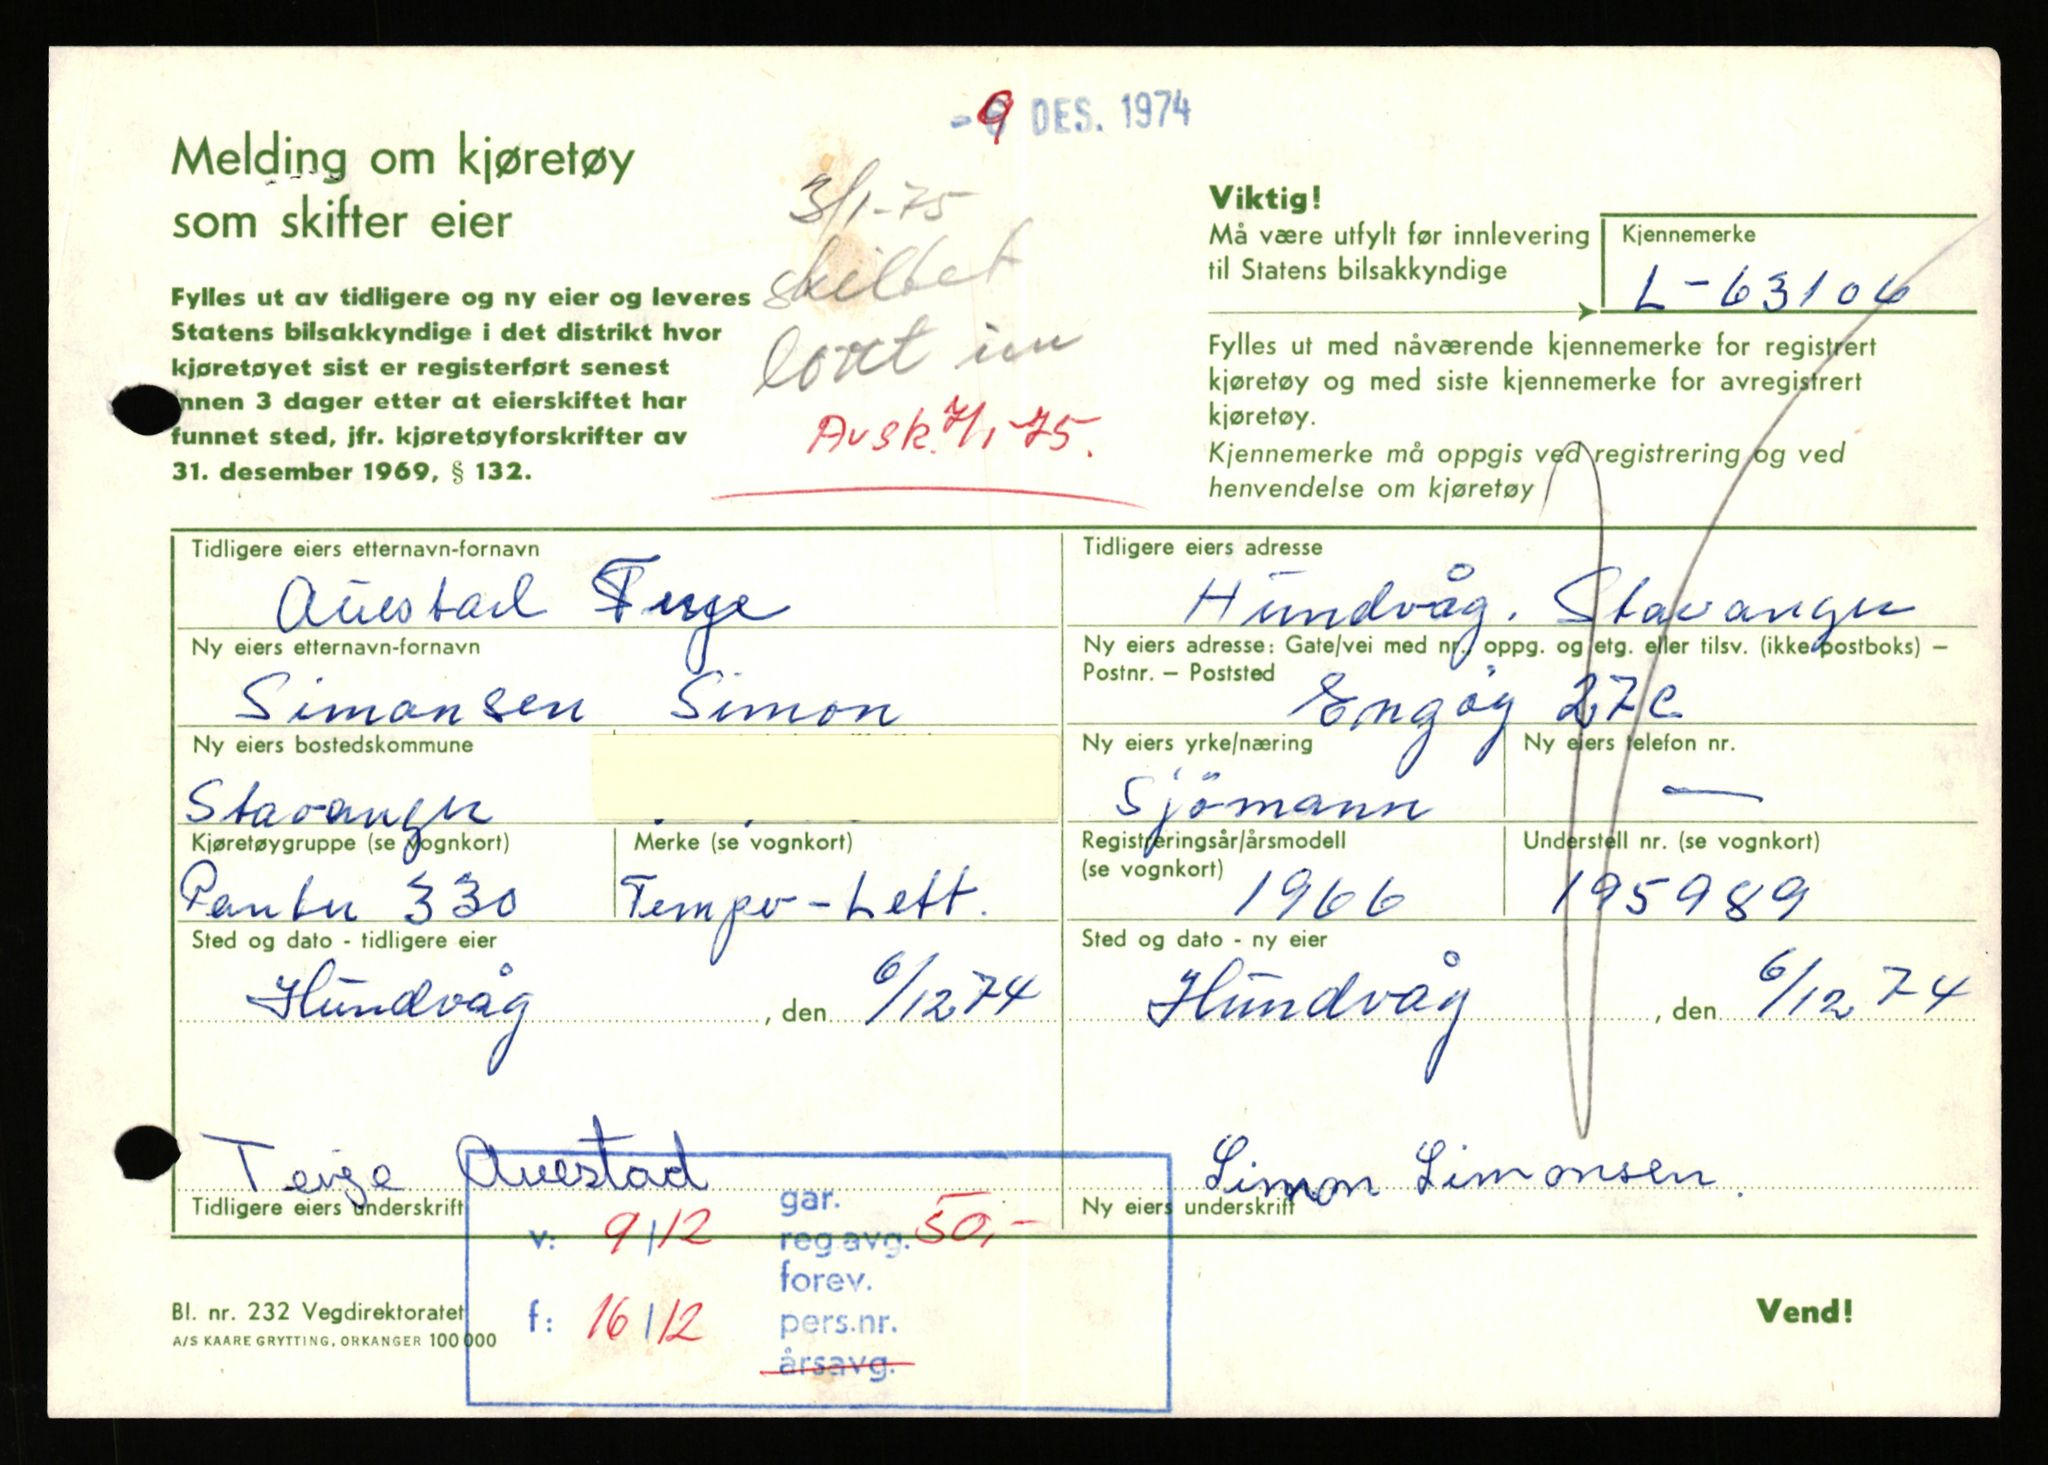 -9 DES. 1974
Melding om kjøretøy
som skifter eier
Fylles ut av tidligere og ny eier og leveres
Statens bilsakkyndige i det distrikt hvor
kjøretøyet sist er registerført senest
innen 3 dager etter at eierskiftet har
funnet sted, jfr. kjøretøyforskrifter av
31. desember 1969, § 132.
3/1-75
skiltet
lovet inn
Avsk. 7/1-75.
Viktig!
Må være utfylt før innlevering
til Statens bilsakkyndige
Kjennemerke
L-63106
Fylles ut med nåværende kjennemerke for registrert
kjøretøy og med siste kjennemerke for avregistrert
kjøretøy.
Kjennemerke må oppgis ved registrering og ved
henvendelse om kjøretøy
Tidligere eiers etternavn-fornavn
Auestad Terje
Tidligere eiers adresse
Hundvåg. Stavanger
Ny eiers etternavn-fornavn
Simonsen Simon
Ny eiers adresse: Gate/vei med nr., oppg. og etg. eller tilsv. (ikke postboks) –
Postnr. – Poststed
Engöy 27c
Ny eiers bostedskommune
Stavanger
Ny eiers yrke/næring
Sjömann
Ny eiers telefon nr.
—
Kjøretøygruppe (se vognkort)
Panter 330
Merke (se vognkort)
Tempo-Lett.
Registreringsår/årsmodell
(se vognkort)
1966
Understell nr. (se vognkort)
195989
Sted og dato - tidligere eier
Hundvåg, den 6/12 74
Sted og dato - ny eier
Hundvåg, den 6/12 74
Terje Auestad
Tidligere eiers underskrift
Simon Simonsen.
Ny eiers underskrift
gar.
v: 9/12 reg avg. 50,-
forev.
f: 16/12 pers.nr.
årsavg.
Bl. nr. 232 Vegdirektoratet
A/S KAARE GRYTTING, ORKANGER 100 000
Vend!